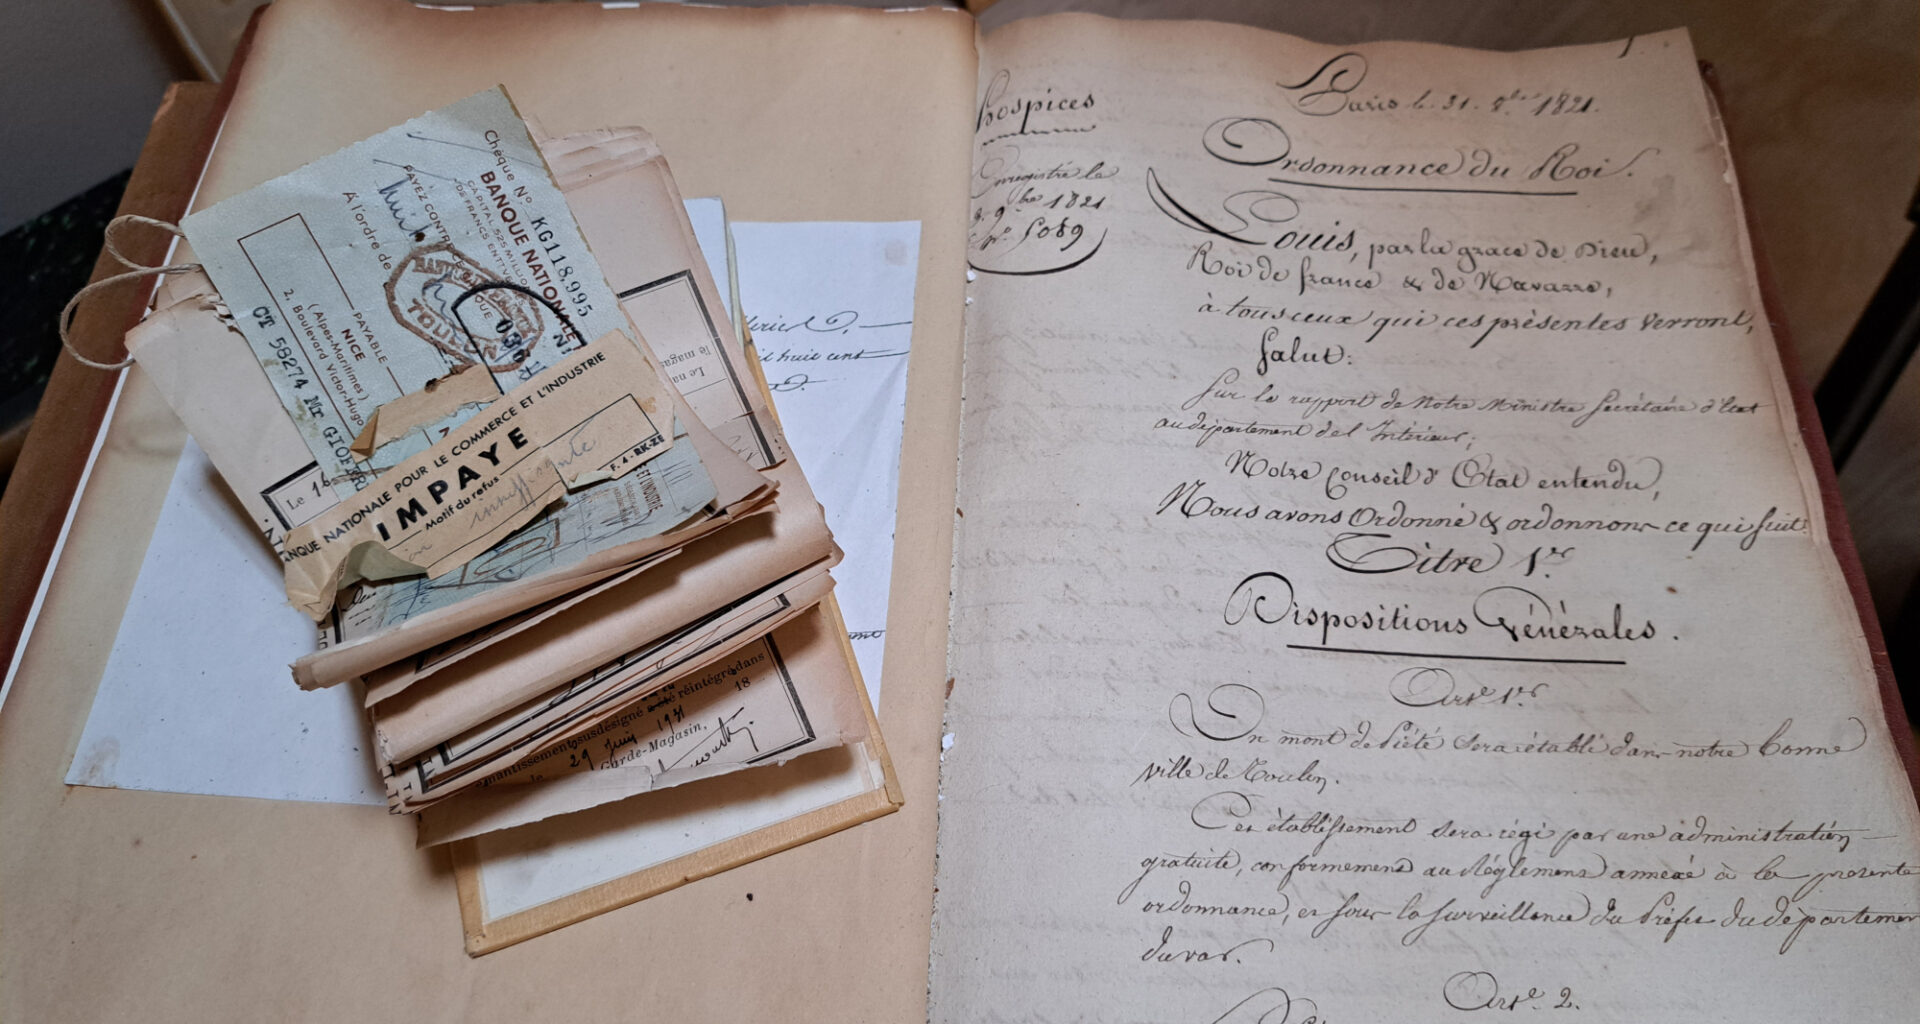 Chèque No KG118,995
BANQUE NATIONALE
CAPITAL 525 MILLIONS
DE FRANCS ENTI
PAYEZ CONTRE CE
A l'ordre de
TOULON
036
PAYABLE
NICE
(Alpes-Maritimes)
2, Boulevard Victor-Hugo
CT 58274 Mr
BANQUE NATIONALE POUR LE COMMERCE ET L'INDUSTRIE
IMPAYE
Motif du refus
insuffisante
F. 4 - RK-ZE
Le 16
Le na
le magas
il huit cent
susdésigné été réintégré dans
18
29 Juin 1931
Garde-Magasin,
Hospices
Enregistré le
1821
No 5089
Paris le 31. 8bre 1821.
Ordonnance du Roi.
Louis, par la grace de Dieu,
Roi de france & de Navarre,
à tous ceux qui ces présentes verront,
Salut:
Sur le rapport de Notre Ministre Secrétaire d'Etat
au département de l'Intérieur;
Notre Conseil d'Etat entendu,
Nous avons Ordonné & ordonnons ce qui suit:
Titre 1er
Dispositions Générales.
Arte 1er
Un mont de Piété sera établi dans notre bonne
ville de Toulon.
Cet établissement sera régi par une administration
gratuite, conformément au Réglement annexé à la présente
ordonnance, et sous la surveillance du Préfet du département
du var.
Arte 2.